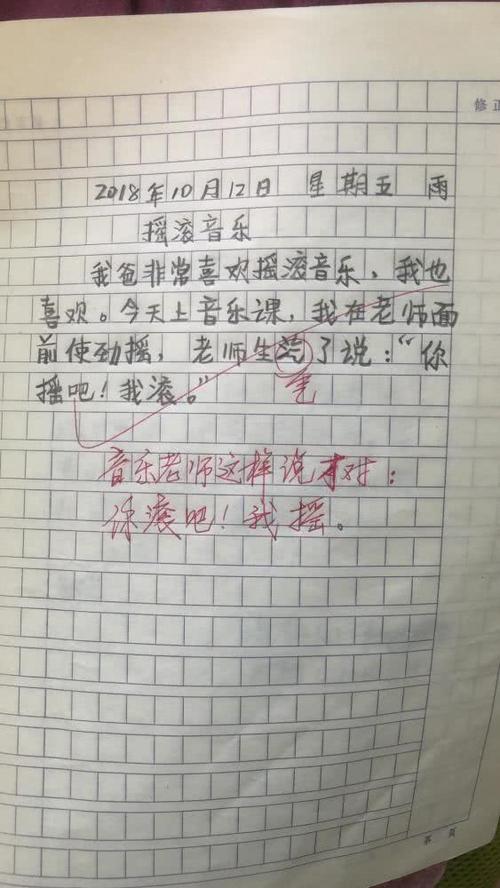 修正
2018年10月12日 星期五 雨
摇滚音乐
我爸非常喜欢摇滚音乐，我也
喜欢。今天上音乐课，我在老师面
前使劲摇，老师生汽了说：“你
摇吧！我滚。”
气
音乐老师这样说才对：
你滚吧！我摇。
第 页